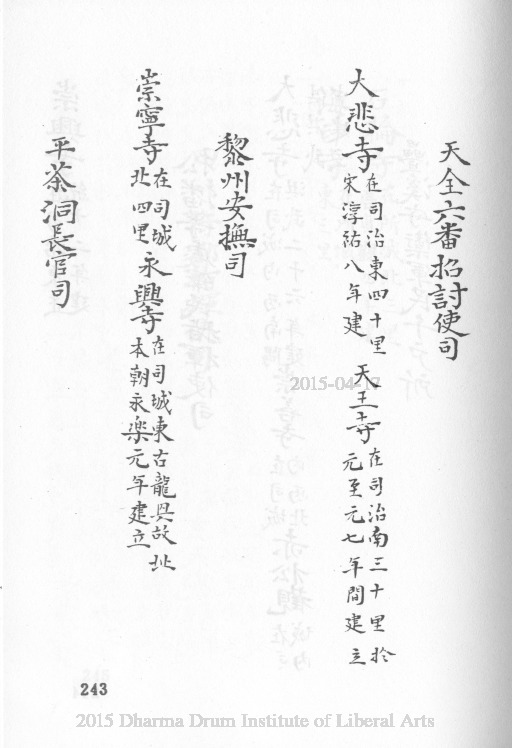 天全六番招討使司
大悲寺在司治東四十里宋淳祐八年建 天王寺在司治南三十里於元至元七年間建立
黎州安撫司
崇寧寺在司城北四里 永興寺在司城東古龍興故址本朝永樂元年建立
平茶洞長官司
243
2015-04-17
2015 Dharma Drum Institute of Liberal Arts